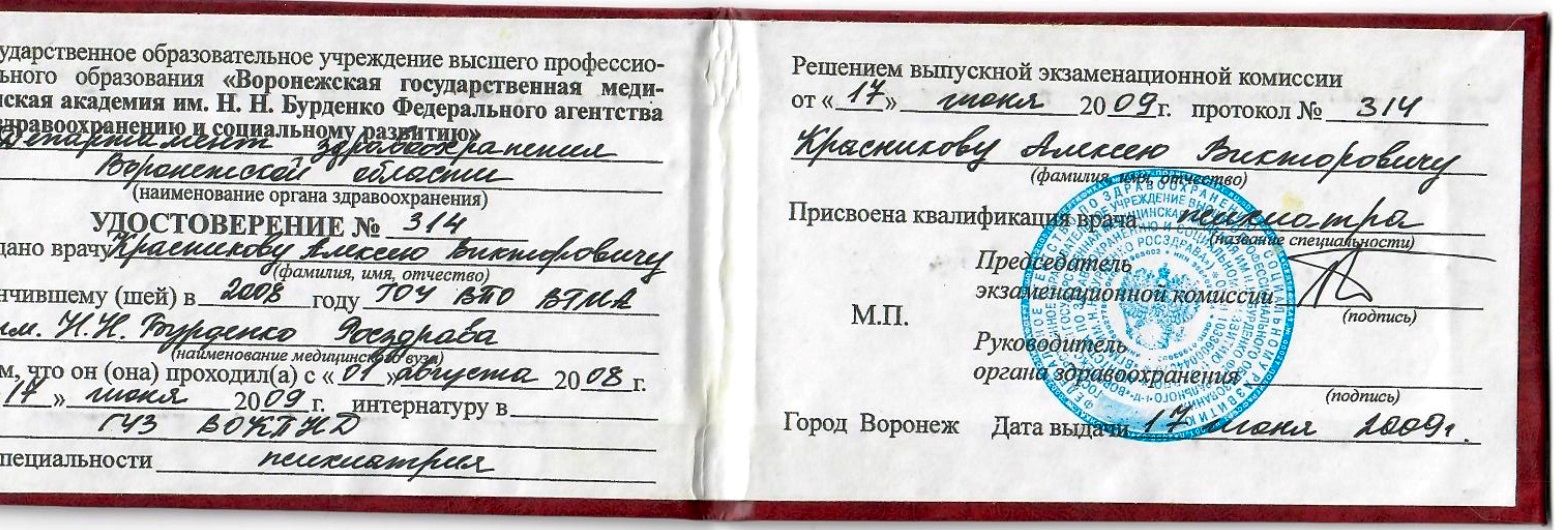 ударственное образовательное учреждение высшего профессио-
ьного образования «Воронежская государственная меди-
нская академия им. Н. Н. Бурденко Федерального агентства
здравоохранению и социальному развитию»
Департамент здравоохранения
Воронежской области
(наименование органа здравоохранения)
УДОСТОВЕРЕНИЕ № 314
дано врачу Красникову Алексею Викторовичу
(фамилия, имя, отчество)
нчившему (шей) в 2008 году ГОУ ВПО ВГМА
им. Н.Н. Бурденко Росздрава
(наименование медицинского вуза)
м, что он (она) проходил(а) с «01» августа 2008 г.
17 » июня 2009 г. интернатуру в
ГУЗ ВОКПНД
пециальности психиатрия
Решением выпускной экзаменационной комиссии
от «17» июня 2009г. протокол № 314
Красникову Алексею Викторовичу
(фамилия, имя, отчество)
Присвоена квалификация врача психиатра
(название специальности)
Председатель
экзаменационной комиссии
(подпись)
М.П.
Руководитель
органа здравоохранения
(подпись)
Город Воронеж Дата выдачи 17 июня 2009г.